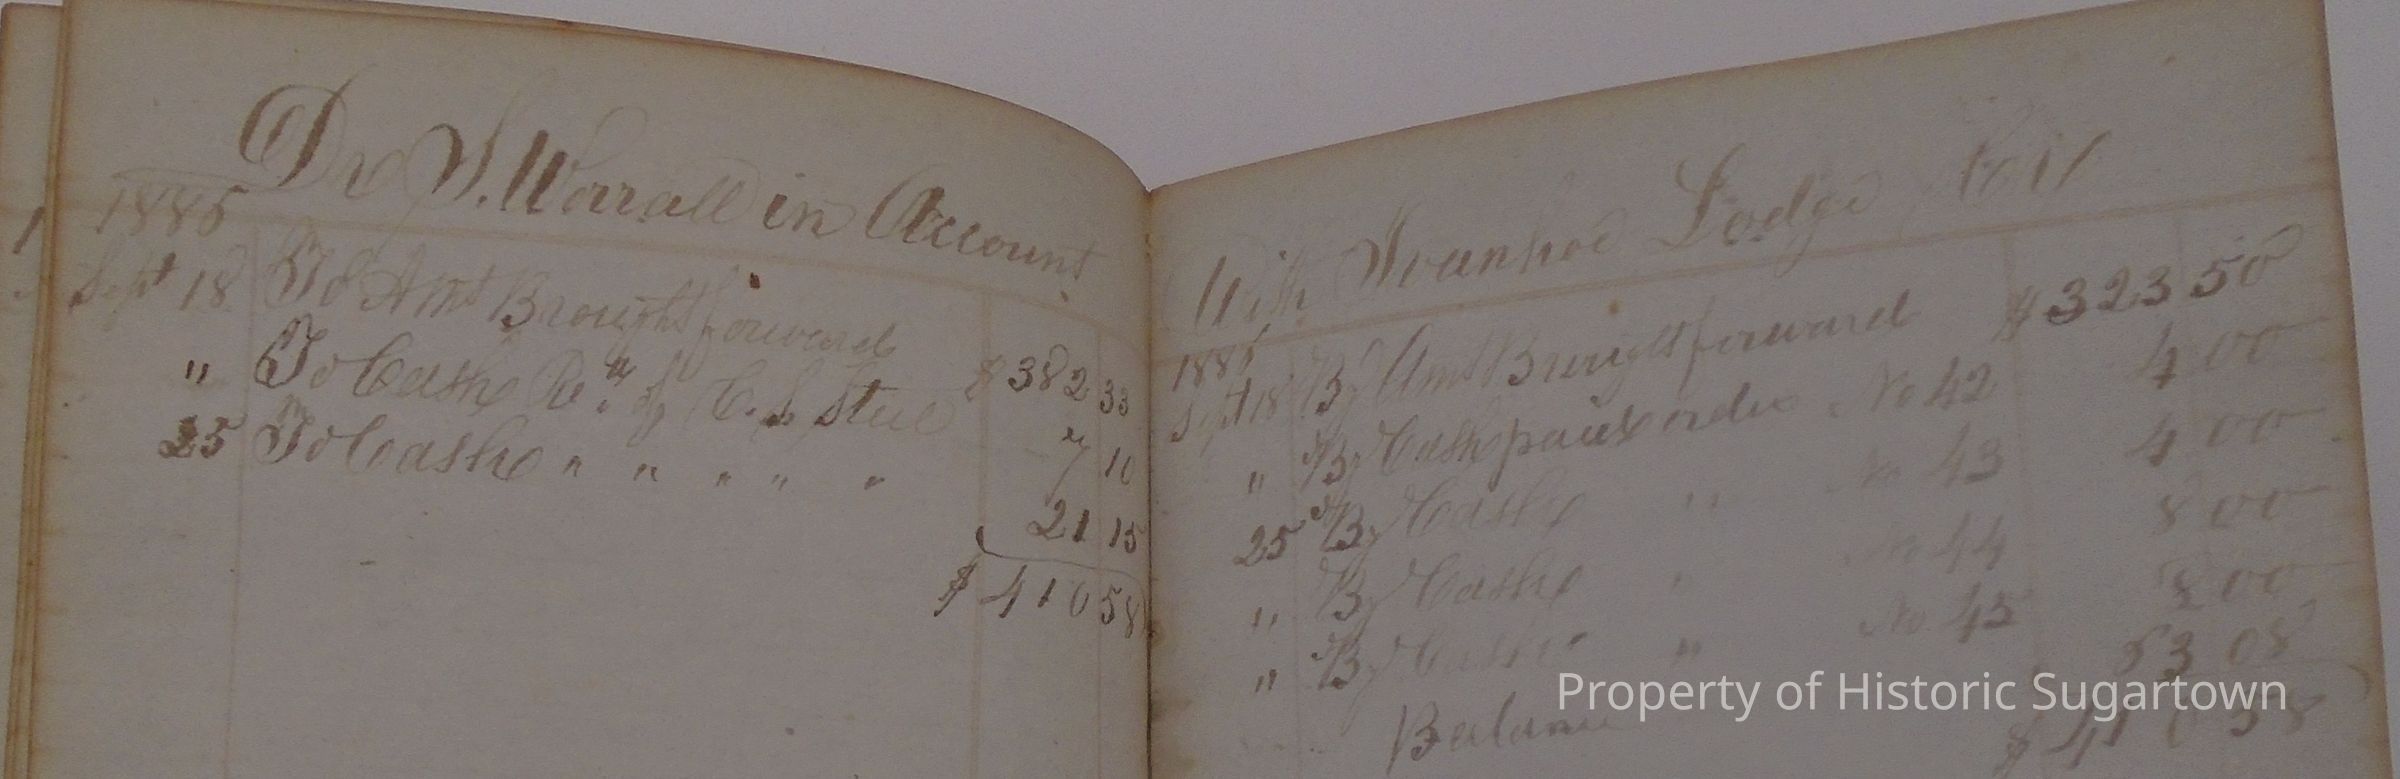 Dr Worrall in Account
1885
Sept 18 To Amt Brought forward $382 33
" To Cash Re. of C. S. Steel 7 10
25 To Cash " " " " " 21 15
$410 58
With Ivanhoe Lodge
1885
Sept 18 By Amt Brought forward $323 50
" By Cash paid order No 42 4 00
25 By Cash " No 43 4 00
" By Cash " No 44 8 00
" By Cash " No 45 8 00
Balance 63 08
$410 58
Property of Historic Sugartown